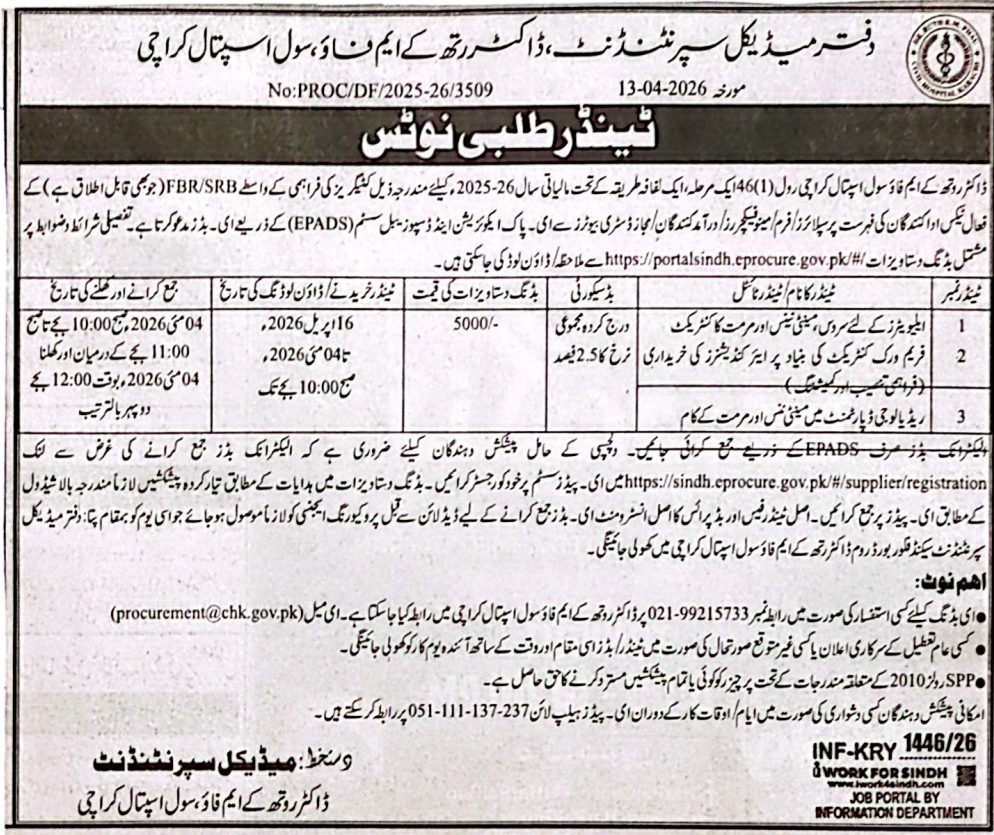 دفتر میڈیکل سپرنٹنڈنٹ، ڈاکٹر رتھ کے ایم فاؤ، سول اسپتال کراچی
No:PROC/DF/2025-26/3509 مورخہ 13-04-2026
ٹینڈر طلبی نوٹس
ڈاکٹر روتھ کے ایم فاؤ سول اسپتال کراچی رول (1)46 ایک مرحلہ، ایک لفافہ طریقہ کے تحت مالیاتی سال 26-2025ء کیلئے مندرجہ ذیل کٹیگریز کی فراہمی کے واسطے FBR/SRB (جو بھی قابل اطلاق ہے) کے
فعال ٹیکس ادا کنندگان کی فہرست پر سپلائرز/فرم/مینوفیکچررز/درآمد کنندگان/مجاز ڈسٹری بیوٹرز سے ای۔ پاک ایکوزیشن اینڈ ڈسپوزیبل سسٹم (EPADS) کے ذریعے ای۔ بڈز مدعو کرتا ہے۔ تفصیلی شرائط و ضوابط پر
مشتمل بڈنگ دستاویزات https://portalsindh.eprocure.gov.pk/#/ سے ملاحظہ/ڈاؤن لوڈ کی جاسکتی ہیں۔
ٹینڈر نمبر ٹینڈر کا نام/ٹینڈر ٹائٹل بڈ سیکورٹی بڈنگ دستاویزات کی قیمت ٹینڈر خریدنے/ڈاؤن لوڈنگ کی تاریخ جمع کرانے اور کھلنے کی تاریخ
1 ایلیویٹرز کے لئے سروس، مینٹی نینس اور مرمت کا کنٹریکٹ درج کردہ مجموعی 5000/- 16 اپریل 2026ء 04 مئی 2026ء صبح 10:00 بجے تا صبح
2 فریم ورک کنٹریکٹ کی بنیاد پر ایئر کنڈیشنرز کی خریداری نرخ کا 2.5 فیصد تا 04 مئی 2026ء 11:00 بجے کے درمیان اور کھلنا
(فراہمی تنصیب اور کمیشننگ) صبح 10:00 بجے تک 04 مئی 2026ء بوقت 12:00 بجے
3 ریڈیالوجی ڈپارٹمنٹ میں مینٹی ننس اور مرمت کے کام دوپہر بالترتیب
الیکٹرانک بڈز صرف EPADS کے ذریعے جمع کرائی جائیں۔ دلچسپی کے حامل پیشکش دہندگان کیلئے ضروری ہے کہ الیکٹرانک بڈز جمع کرانے کی غرض سے لنک
https://sindh.eprocure.gov.pk/#/supplier/registration میں ای۔ پیڈز سسٹم پر خود کو رجسٹر کرائیں۔ بڈنگ دستاویزات میں ہدایات کے مطابق تیار کردہ پیشکشیں لازماً مندرجہ بالا شیڈول
کے مطابق ای۔ پیڈز پر جمع کرائیں۔ اصل ٹینڈر فیس اور بڈ پرائس کا اصل انسٹرومنٹ ای۔ بڈز جمع کرانے کے لیے ڈیڈ لائن سے قبل پروکیورنگ ایجنسی کو لازماً موصول ہوجائے جو اسی یوم کو بمقام پتا: دفتر میڈیکل
سپرنٹنڈنٹ سیکنڈ فلور بورڈ روم ڈاکٹر رتھ کے ایم فاؤ سول اسپتال کراچی میں کھولی جائینگی۔
اہم نوٹ:
● ای بڈنگ کیلئے کسی استفسار کی صورت میں رابطہ نمبر 99215733-021 پر ڈاکٹر روتھ کے ایم فاؤ سول اسپتال کراچی میں رابطہ کیا جاسکتا ہے۔ ای میل (procurement@chk.gov.pk)
● کسی عام تعطیل کے سرکاری اعلان یا کسی غیر متوقع صورتحال کی صورت میں ٹینڈر/بڈز اسی مقام اور وقت کے ساتھ آئندہ یوم کار کو کھولی جائینگی۔
● SPP رولز 2010 کے متعلقہ مندرجات کے تحت پرچیزر کو کوئی یا تمام پیشکشیں مسترد کرنے کا حق حاصل ہے۔
امکانی پیشکش دہندگان کسی دشواری کی صورت میں ایام/اوقات کار کے دوران ای۔ پیڈز ہیلپ لائن 051-111-137-237 پر رابطہ کرسکتے ہیں۔
دستخط: میڈیکل سپرنٹنڈنٹ
ڈاکٹر روتھ کے ایم فاؤ سول اسپتال کراچی
INF-KRY 1446/26
WORK FOR SINDH
www.iwork4sindh.com
JOB PORTAL BY
INFORMATION DEPARTMENT